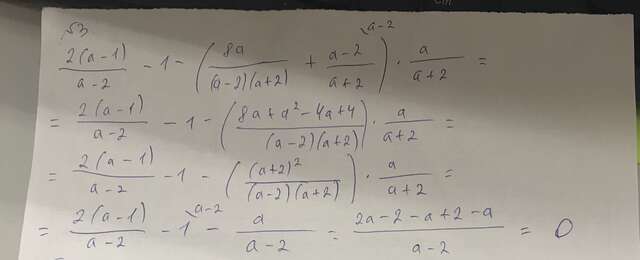 √3
2(a-1)/(a-2) - 1 - (8a/((a-2)(a+2)) + (a-2)/(a+2)^(a-2)) · a/(a+2) =
= 2(a-1)/(a-2) - 1 - ((8a+a²-4a+4)/((a-2)(a+2))) · a/(a+2) =
= 2(a-1)/(a-2) - 1 - ((a+2)²/((a-2)(a+2))) · a/(a+2) =
= 2(a-1)/(a-2) - 1^(a-2) - a/(a-2) = (2a-2-a+2-a)/(a-2) = 0